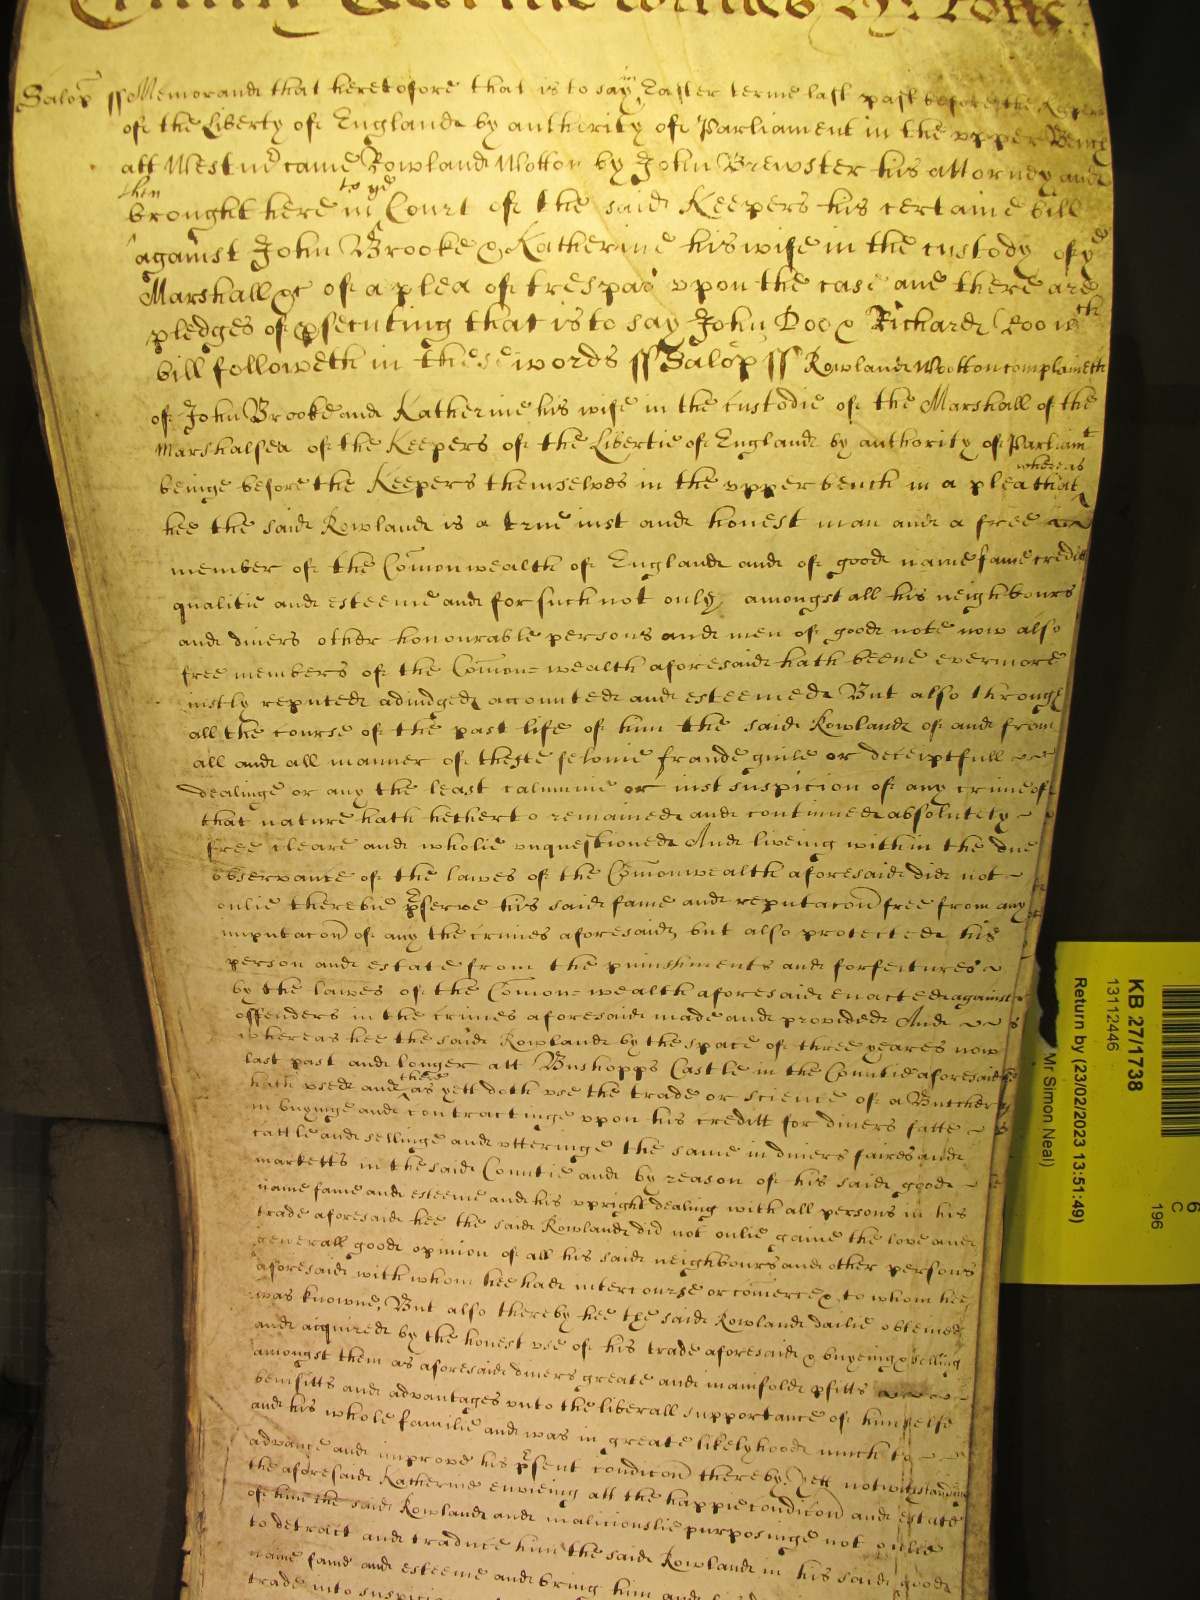 Salop ss Memorand that heretofore that is to say in Easter terme last past before the Keepers
of the Liberty of England by authority of Parliament in the upper Bench
att Westm came Rowland Wotton by John Brewster his attorney and
then brought here into ye Court of the said Keepers his certaine bill
against John Brooke & Katherine his wife in the custody of ye
Marshall &c of a plea of trespas upon the case and there are
pledges of psecuting that is to say John Doo & Richard Roo wch
bill followeth in these words ss Salop ss Rowland Wotton complaineth
of John Brooke and Katherine his wife in the Custodie of the Marshall of the
Marshalsea of the Keepers of the Libertie of England by authority of Parliamt
beinge before the Keepers themselves in the upper bench in a plea that whereas
hee the said Rowland is a true iust and honest man and a free
member of the Comonwealth of England and of good name fame creditt
qualitie and esteeme and for such not only amongst all his neighbours
and divers other honourable persons and men of good note now also
free members of the Comon=wealth aforesaid hath beene evermore
iustly reputed adiudged accounted and esteemed But also through
all the course of the past life of him the said Rowland of and from
all and all manner of thefte felonie fraude guile or deceiptfull
dealinge or any the least calumnie or iust suspicion of any crime of
that nature hath hetherto remained and continued absolutely
free cleare and wholie unquestioned And liveing within the due
observance of the lawes of the Comonwealth aforesaid did not
onlie therebie pserve his said fame and reputacon free from any
imputacon of any the crimes aforesaid but also protected his
person and estate from the punishments and forfeitures
by the lawes of the Comon=wealth aforesaid enacted against
offenders in the crimes aforesaid made and provided And
whereas hee the said Rowland by the space of three yeares now
last past and longer att Bushopps Castle in the Countie aforesaid
hath used and there as yett doth use the trade or science of a Butcher
in buyinge and contractinge upon his creditt for divers fatte
cattle and sellinge and utteringe the same in divers faires and
marketts in the said Countie and by reason of his said good
name fame and esteeme and his upright dealing with all persons in his
trade aforesaid hee the said Rowland did not onlie gaine the love and
generall good opinion of all his said neighbours and other persons
aforesaid with whom hee had intercourse or comerce & to whom hee
was knowne, But also thereby hee the said Rowland dailie obteined
and acquired by the honest use of his trade aforesaid & buyeing & selling
amongst them as aforesaid divers greate and manifold pfitts
benifitts and advantages unto the liberall supportance of himselfe
and his whole familie and was in greate likelyhood much to
advance and improve his psent condicon thereby. Yett notwithstanding
the aforesaid Katherine envieing att the happie condicon and estate
of him the said Rowland and maliciouslie purposinge not onlie
to detract and traduce him the said Rowland in his said good
name fame and esteeme and bring him and
trade into
KB 27/1738
13112446
Return by (23/02/2023 13:51:49)
Mr Simon Neal)
6
C
196